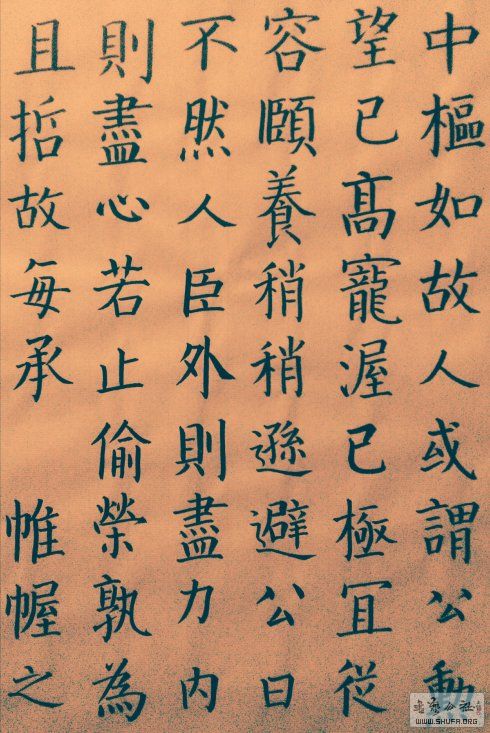 中樞如故人或謂公勳
望已高寵渥已極冝從
容頤養稍稍遜避公曰
不然人臣外則盡力内
則盡心若止偷榮孰為
且哲故每承 帷幄之
WWW.SHUFA.ORG